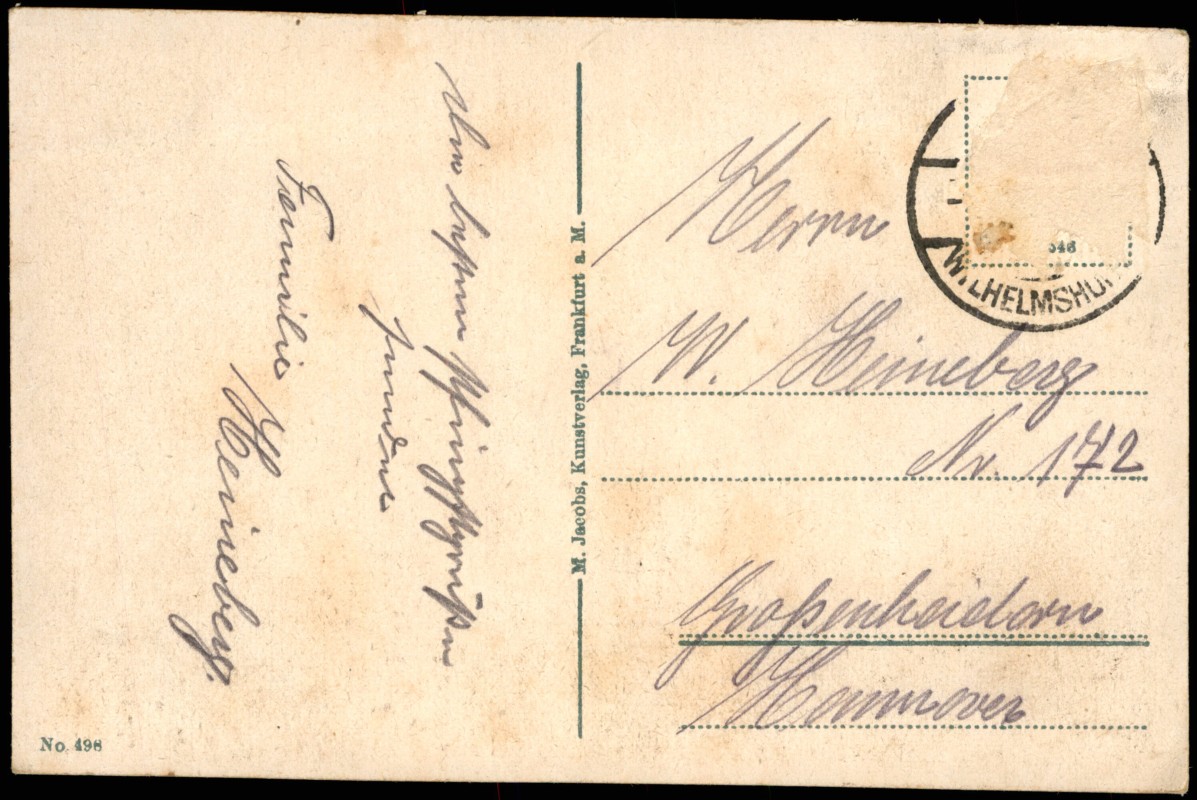 Die besten Pfingstgrüße
sendet
Familie
Heineberg.
M. Jacobs, Kunstverlag, Frankfurt a. M.
Herrn
W. Heineberg
Nr. 172
Großenheidorn
Hannover
WILHELMSHÖ
346
No. 498